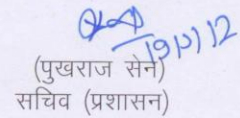 19/1/12
(पुखराज सेन)
सचिव (प्रशासन)